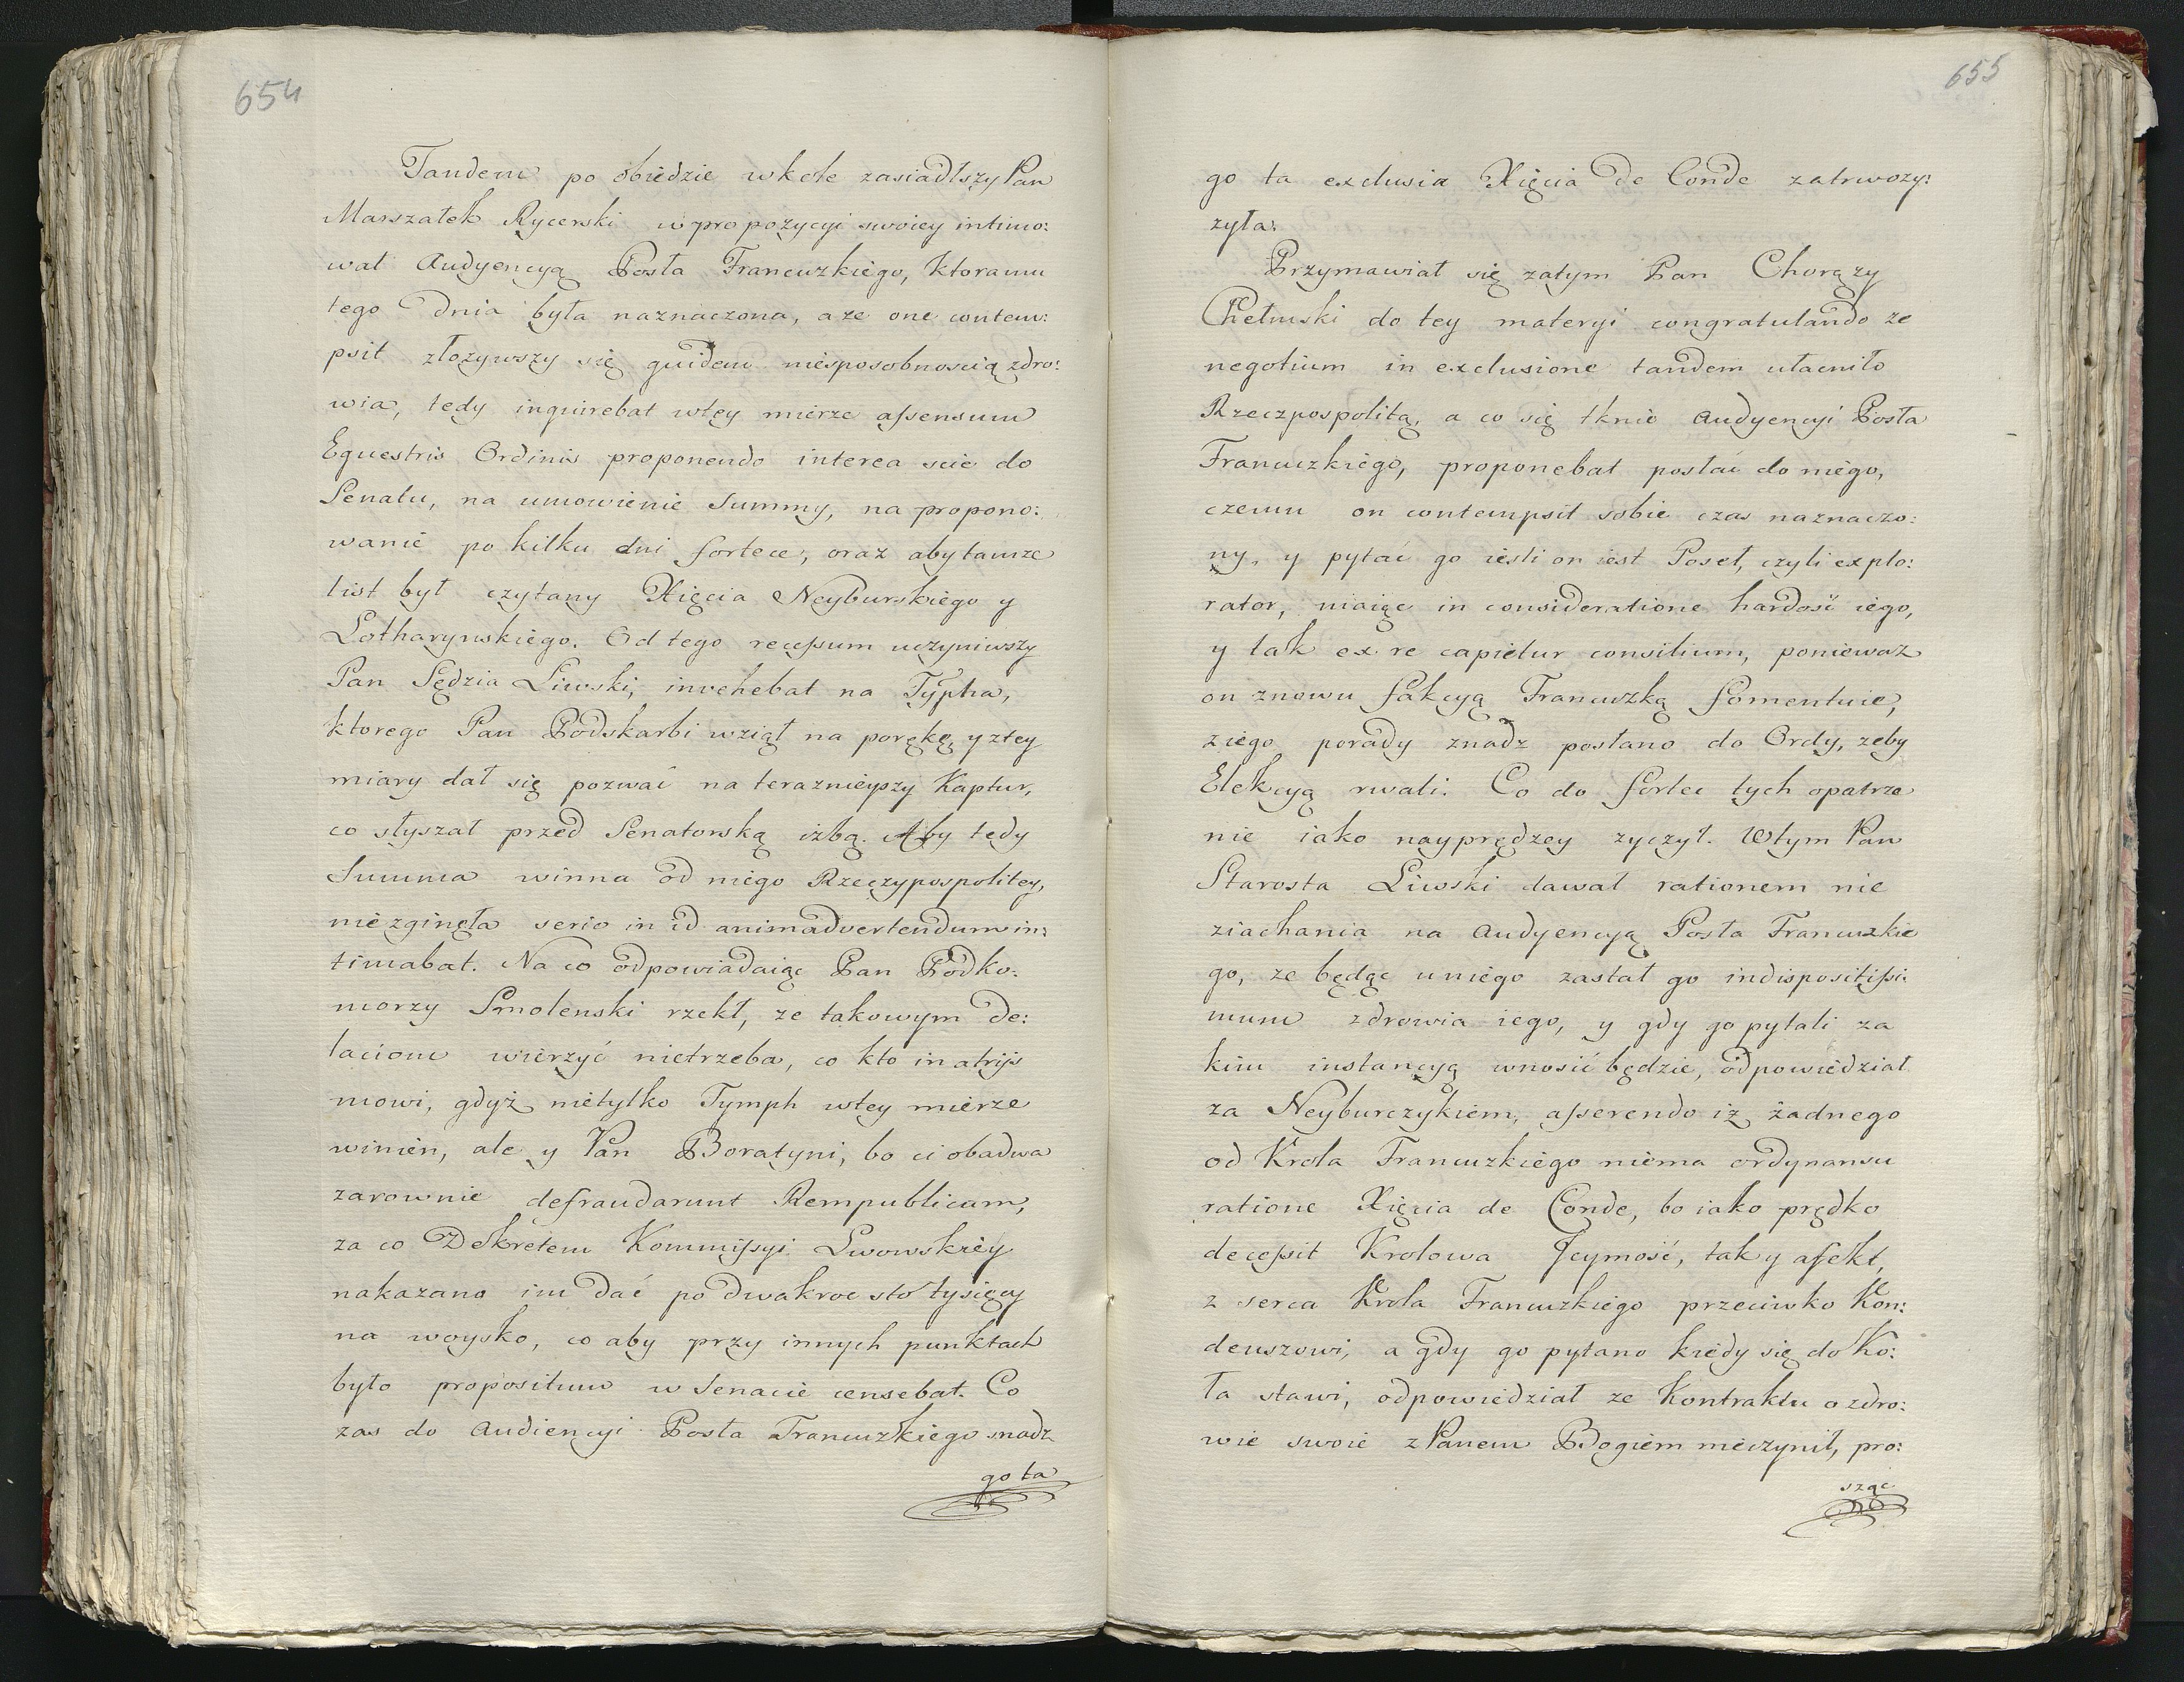 654
Tandem po obiedzie wkole zasiadłszy Pan
Marszałek Rycerski w propozycyi swoiey intimo:
wał Audyencyą Posła Francuzkiego, ktoramu
tego dnia była naznaczona, aze one contem:
psit złozywszy się quidem niesposobnoscią zdro:
wia, tedy inquirebat wtey mierze assensum
Equestris Ordinis proponendo interea scie do
Senatu, na umowienie Summy, na propono:
wanie po kilku dni fortece, oraz aby tamze
list był czytany Xięcia Neyburskiego y
Lotharynskiego. Od tego recessum uczyniwszy
Pan Sędzia Liwski, invehebat na Typha,
ktorego Pan Podskarbi wziął na porękę, y ztey
miary dał się pozwać na teraznieyszy Kaptur,
co słyszał przed Senatorską izbą. Aby tedy
Summa winna od niego Rzeczypospolitey,
niezginęła serio in id animadvertendum in:
timabat. Na co odpowiadaiąc Pan Podko:
morzy Smolenski rzekł, ze takowym de:
laciom wierzyć nietrzeba, co kto in atrijs
mowi, gdyż nietylko Tymph wtey mierze
winien, ale y Pan Boratyni, bo ci obadwa
zarownie defraudarunt Rempublicam,
za co Dekretem Kommissyi Lwowskiey
nakazano im dać po dwakroc sto tysięcy
na woysko, co aby przy innych punktach
było propositum w Senacie censebat. Co
zas do Audiencyi Posła Francuzkiego snadz
go ta
655
go ta exclusia Xięcia de Conde zatrwozy:
zyła.
Przymawiał się zatym Pan Chorązy
Chełmski do tey materyi congratulando ze
negotium in exclusione tandem ułacniło
Rzeczpospolitą, a co się tknie Audyencyi Posła
Francuzkiego, proponebat posłać do niego,
czemu on contempsit sobie czas naznaczo:
ny, y pytać go iesli on iest Poseł, czyli explo:
rator, maiąc in consideratione hardość iego,
y tak ex re capietur consilium, poniewaz
on znowu fakcyą Francuzką fomentuie,
z iego porady znadz posłano do Ordy, zeby
Elekcyą rwali. Co do fortec tych opatrze
nie iako nayprędzey zyczył. Wtym Pan
Starosta Liwski dawał rationem nie
ziachania na Audyencyą Posła Francuzkie
go, ze będąc uniego zastał go indispositissi:
mum zdrowia iego, y gdy go pytali za
kim instancyą wnosić będzie, odpowiedział
za Neyburczykiem, asserendo iz żadnego
od Krola Francuzkiego niema ordynansu
ratione Xięcia de Conde, bo iako prędko
decessit Krolowa Jeymość, tak y afekt,
z serca Krola Francuzkiego przeciwko Kon:
deuszowi, a gdy go pytano kiedy się do Ko:
ła stawi, odpowiedział ze Kontraktu o zdro:
wie swoie z Panem Bogiem nieczynił, pro:
sząc